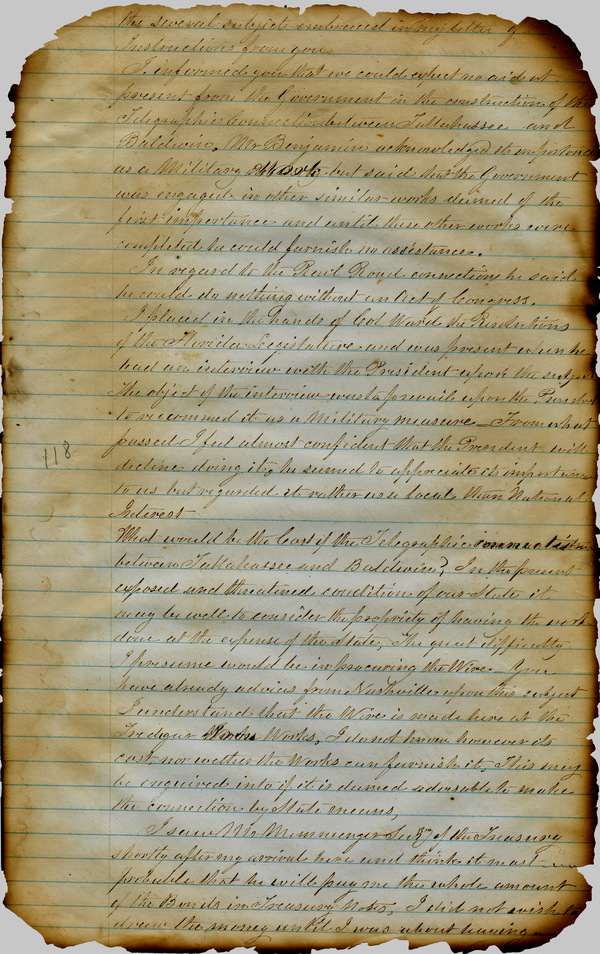 the several subjects embraced in my letter of
Instructions from you
I informed you that we could expect no aid at
present from the Government in the construction of the
Telegraphic Connection between Tallahassee and
Baldwin. Mr Benjamin acknowledged its importance
as a Military but said that the Government
was engaged in other similar works deemed of the
first importance and until these other works were
completed he could furnish no assistance.
In regard to the Rail Road connections he said
he could do nothing without an Act of Congress.
I placed in the hands of Col Ward the Resolutions
of the Florida Legislature and was present when he
had an interview with the President upon the subject
The object of the interview was to prevail upon the President
to recommed it as a Military measure – From what
passed I feel almost confident that the President will
118
decline doing it, he seemed to appreciate its importance
to us but regarded it rather as a local than National
Interest
What would be the Cost of the Telegraphic connection
between Tallahassee and Baldwin? In the present
exposed and threatened condition of our State it
may be well to consider the propriety of having the work
done at the expense of the State, The great difficulty
I presume would be in procuring the Wire – You
have already advices from Nashville upon this subject
I understand that the Wire is made here at the
Tredegar Works, I do not know however its
cost nor wether the Works can furnish it, This may
be enquired into if it is deemed advisable to make
the connection by State means,
I saw Mr Memminger Secry of the Treasury
shortly after my arrival here and think it most
probable that he will pay me the whole amount
of the Bonds in Treasury Notes, I did not wish to
draw the money until I was about leaving